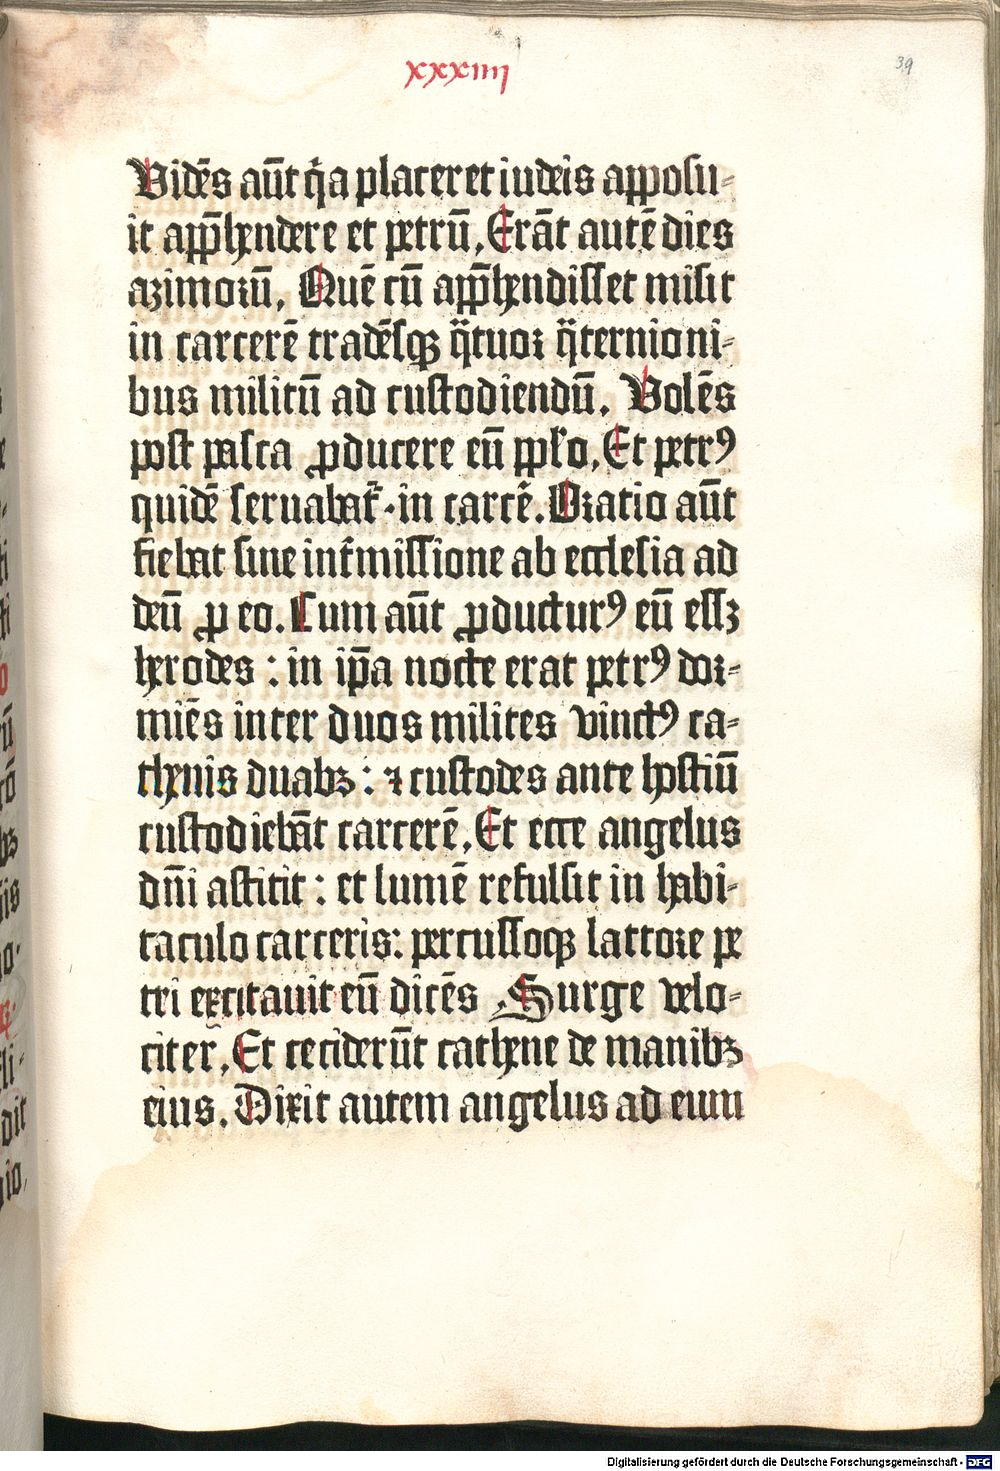 xxxiiij
39
Vidēs aūt q̇a placeret iudeis apposu⸗
it app̄hendere et petrū, Erāt autē dies
azimorū, Quē cū app̄hendisset misit
in carcerē tradēsqꝫ q̄tuor q̄ternioni⸗
bus militū ad custodiendū. Volēs
post pasca ꝓducere eū pplo, Et petrꝰ
quidē seruabat᷑ · in carcē. Oratio aūt
fiebat sine int᷑missione ab ecclesia ad
deū ꝓ eo. Cum aūt ꝓducturꝰ eū essꝫ
herodes : in ip̄a nocte erat petrꝰ dor⸗
miēs inter duos milites vinctꝰ ca⸗
thenis duabꝫ : ⁊ custodes ante hostiū
custodiebāt carcerē, Et ecce angelus
dn̄i astitit : et lumē refulsit in habi⸗
taculo carceris: percussoqꝫ lattore pe
tri excitauit eū dicēs, Surge velo⸗
citer, Et ceciderūt cathene de manibꝫ
eius. Dixit autem angelus ad eum
Digitalisierung gefördert durch die Deutsche Forschungsgemeinschaft - DFG